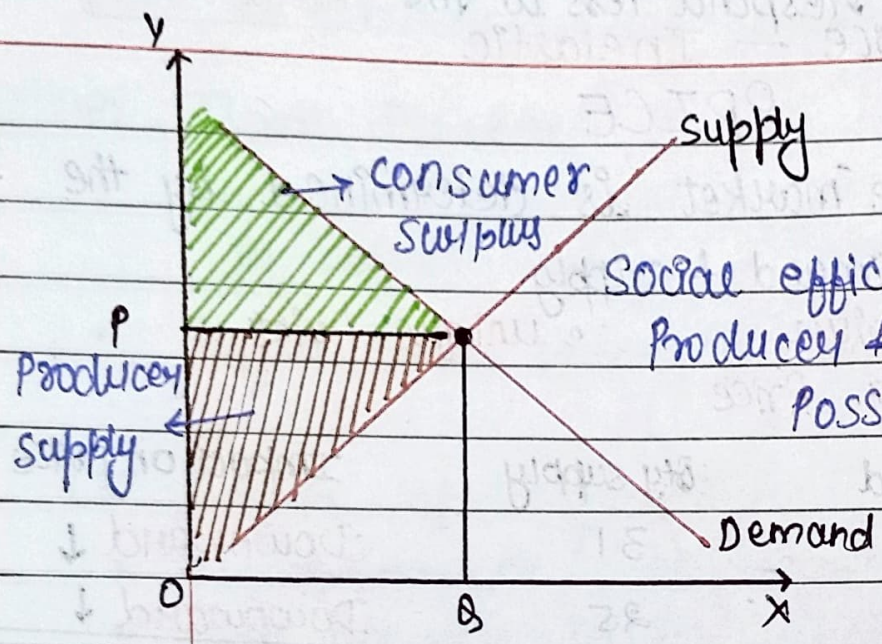 Y
Supply
Consumer
Surplus
Social effic
P
Producer +
Producer
Poss
Supply
Demand
O
Q
X